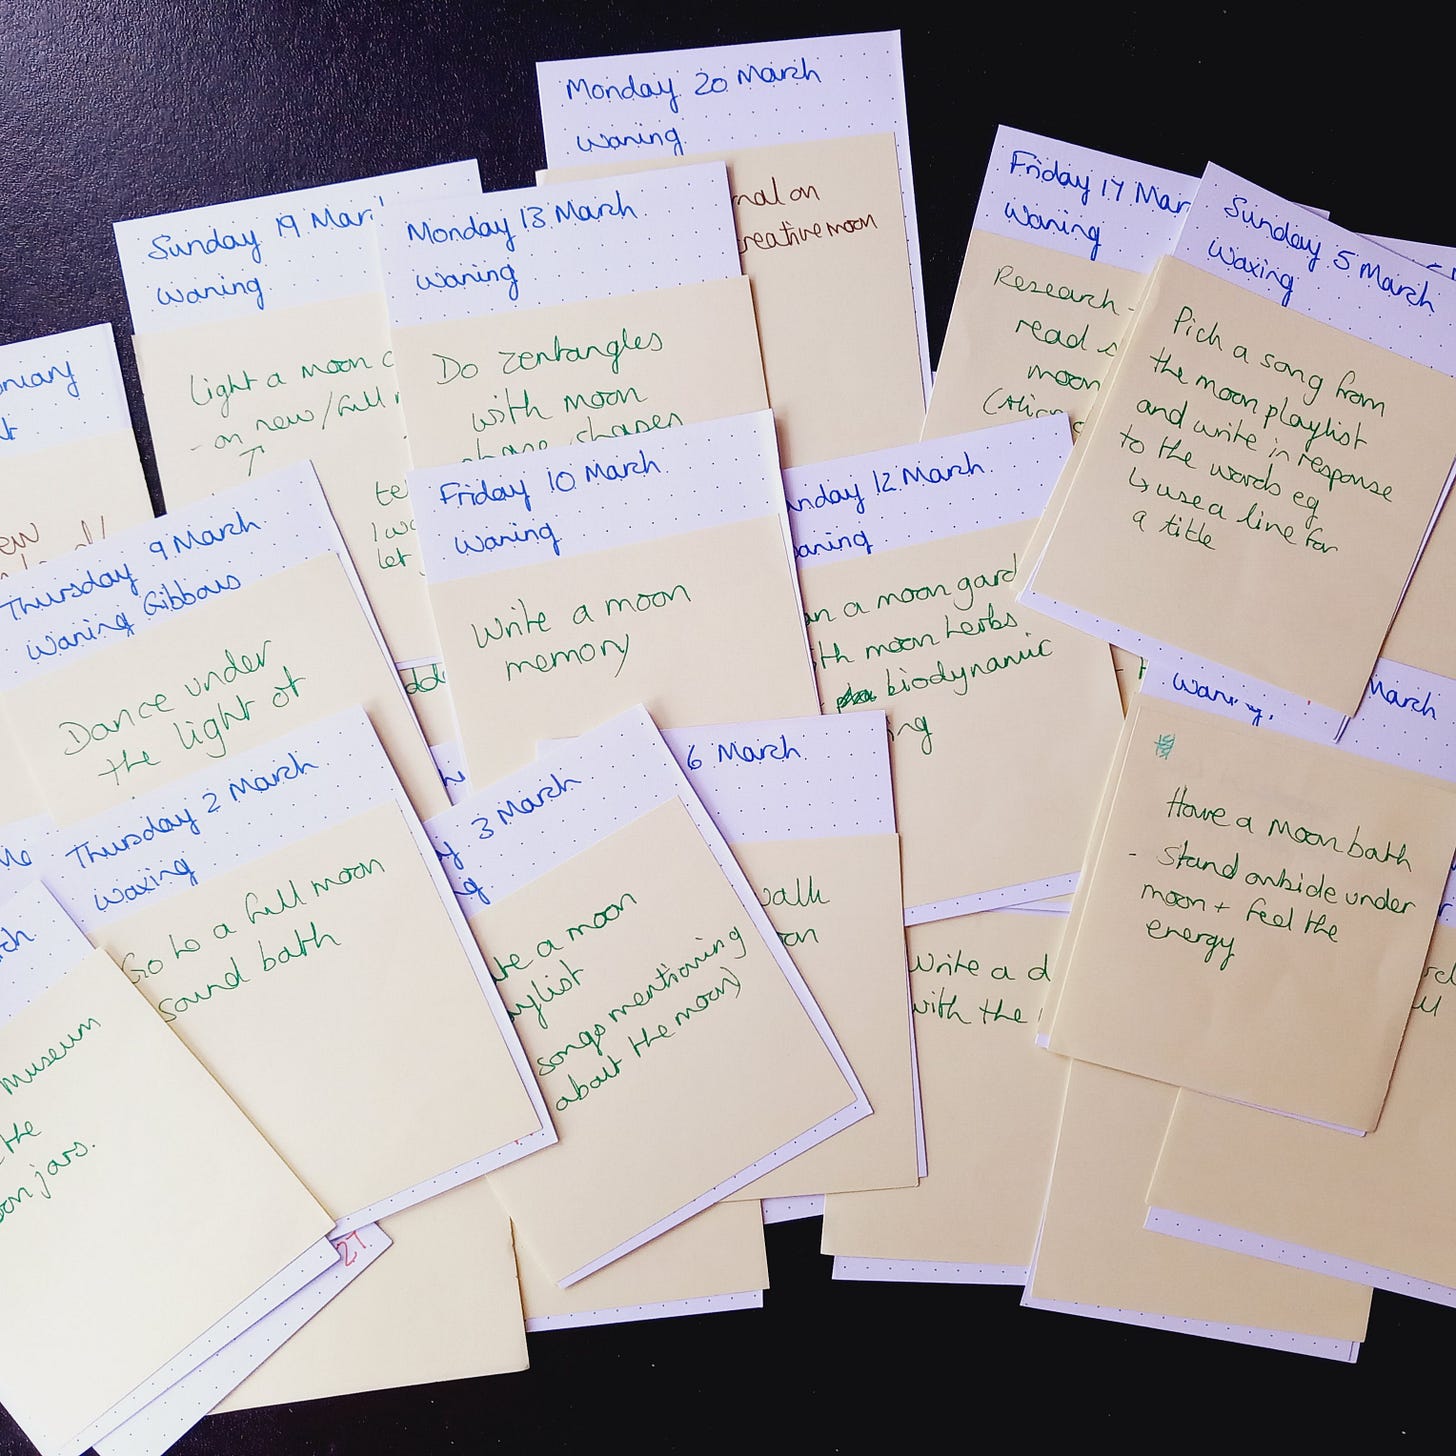 Monday 20 March
waning
nal on
reative moon
Sunday 19 Mar
waning
Light a moon c
- on new/full
Monday 13 March
waning
Do zentangles
with moon
shapes
Friday 17 Mar
waning
Research -
read s
moon
Sunday 5 March
waxing
Pick a song from
the moon playlist
and write in response
to the words eg
↳ use a line for
a title
Thursday 9 March
Waning Gibbous
Dance under
the light of
Friday 10 March
waning
Write a moon
memory
nday 12 March
aning
an a moon gard
ith moon herbs
biodynamic
ng
Thursday 2 March
waxing
Go to a full moon
sound bath
3 March
te a moon
ylist
songs mentioning
about the moon)
6 March
walk
on
Write a d
with the
March
waning.
Have a Moon bath
- Stand outside under
moon + feel the
energy
Museum
the
oon jars.
27